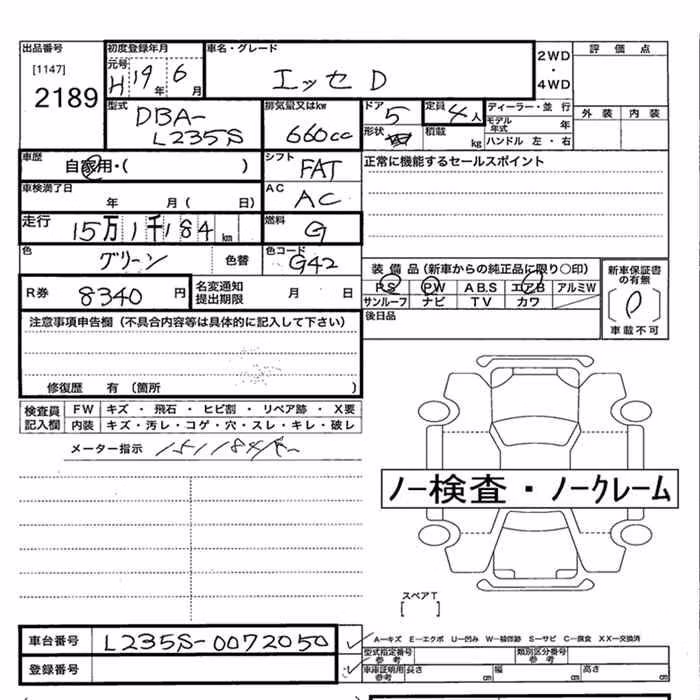 出品番号 初度登録年月 車名・グレード 2WD・4WD 評価点
[1147] 元号 H 19年 6月 エッセ D
2189 外装 内装
型式 DBA-L235S 排気量又はkw 660cc ドア 5 定員 4人 ディーラー・並行
モデル年式 年
形状 積載 kg ハンドル 左・右
車歴 自家用・( ) シフト FAT 正常に機能するセールスポイント
車検満了日 年 月( 日) AC AC
走行 15万1千184km 燃料 G
色 グリーン 色替 色コード G42
装備品(新車からの純正品に限り○印) 新車保証書の有無
R券 8340円 名変通知提出期限 月 日
PS PW ABS エアB アルミW
サンルーフ ナビ TV カワ
車載不可
注意事項申告欄(不具合内容等は具体的に記入して下さい) 後日品
修復歴 有(箇所 )
検査員記入欄 FW キズ・飛石・ヒビ割・リペア跡・X要
内装 キズ・汚レ・コゲ・穴・スレ・キレ・破レ
メーター指示 151184
ノー検査・ノークレーム
スペアT
[ ]
車台番号 L235S-0072050 A―キズ E―エクボ U―凹み W―補修跡 S―サビ C―腐食 XX―交換済
型式指定番号参考 類別区分番号参考
登録番号 車庫証明用参考 長さ cm 幅 cm 高さ cm